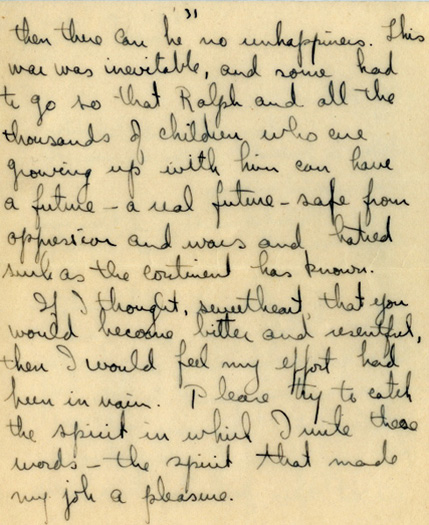 31
then there can be no unhappiness. This
war was inevitable, and some had
to go so that Ralph and all the
thousands of children who are
growing up with him can have
a future – a real future – safe from
oppression and wars and hatred
such as the continent has known.
If I thought, sweetheart, that you
would become bitter and resentful,
then I would feel my effort had
been in vain. Please try to catch
the spirit in which I write these
words – the spirit that made
my job a pleasure.